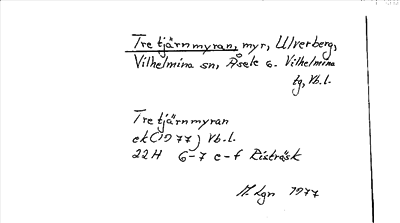 Tre tjärnmyran, myr, Ulverberg,
Vilhelmina sn, Åsele o. Vilhelmina
tg, Vb.l.
Tre tjärnmyran
ek (1977) Vb.l.
22H 6-7 e-f Risträsk
M. Lgn 1977